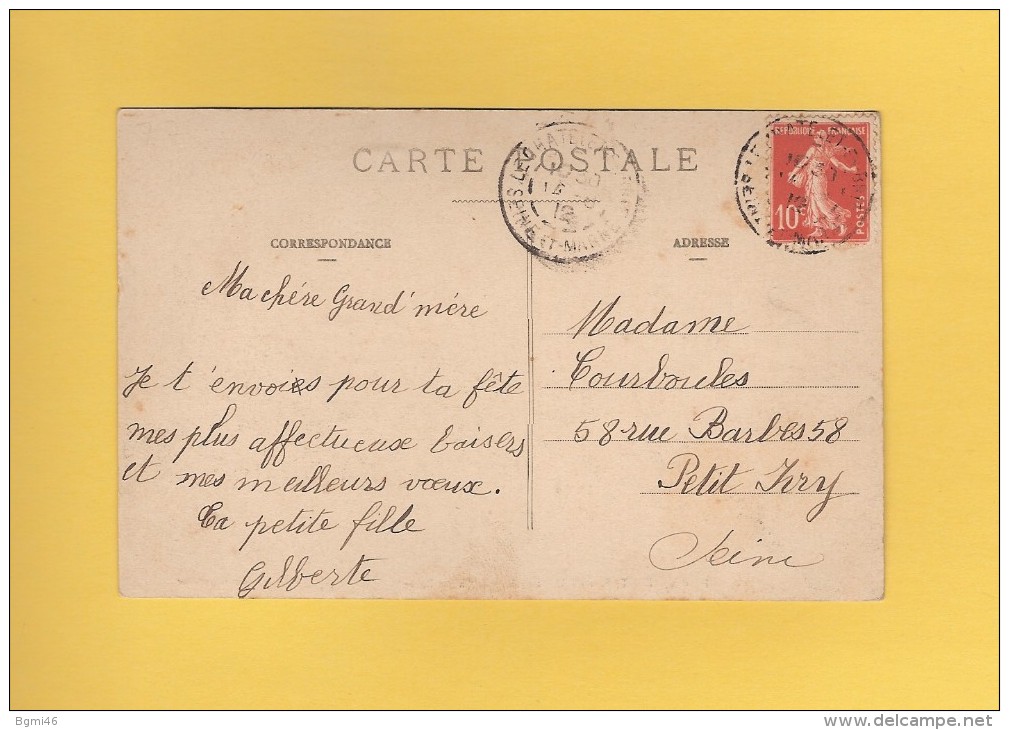 CARTE POSTALE
CORRESPONDANCE
Ma chére Grand'mére
Je t'envoies pour ta fête
mes plus affectueuse baisers
et mes meilleurs vœux.
Ta petite fille
Gilberte
ADRESSE
Madame
Courboules
58 rue Barbes 58
Petit Ivry
Seine
REPUBLIQUE FRANÇAISE
10c
POSTES
LE CHATELET
SEINE-ET-MARNE
Bgmi46
www.delcampe.net